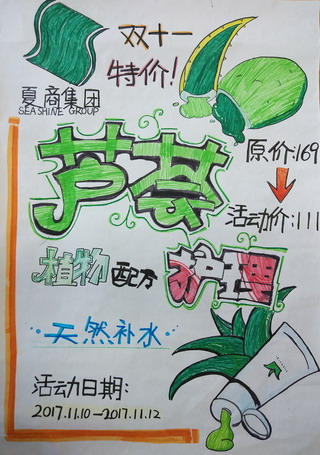 双十一
特价!
夏商集团
SEASHINE GROUP
芦荟
原价:169
活动价:111
植物配方护理
天然补水
活动日期:
2017.11.10—2017.11.12